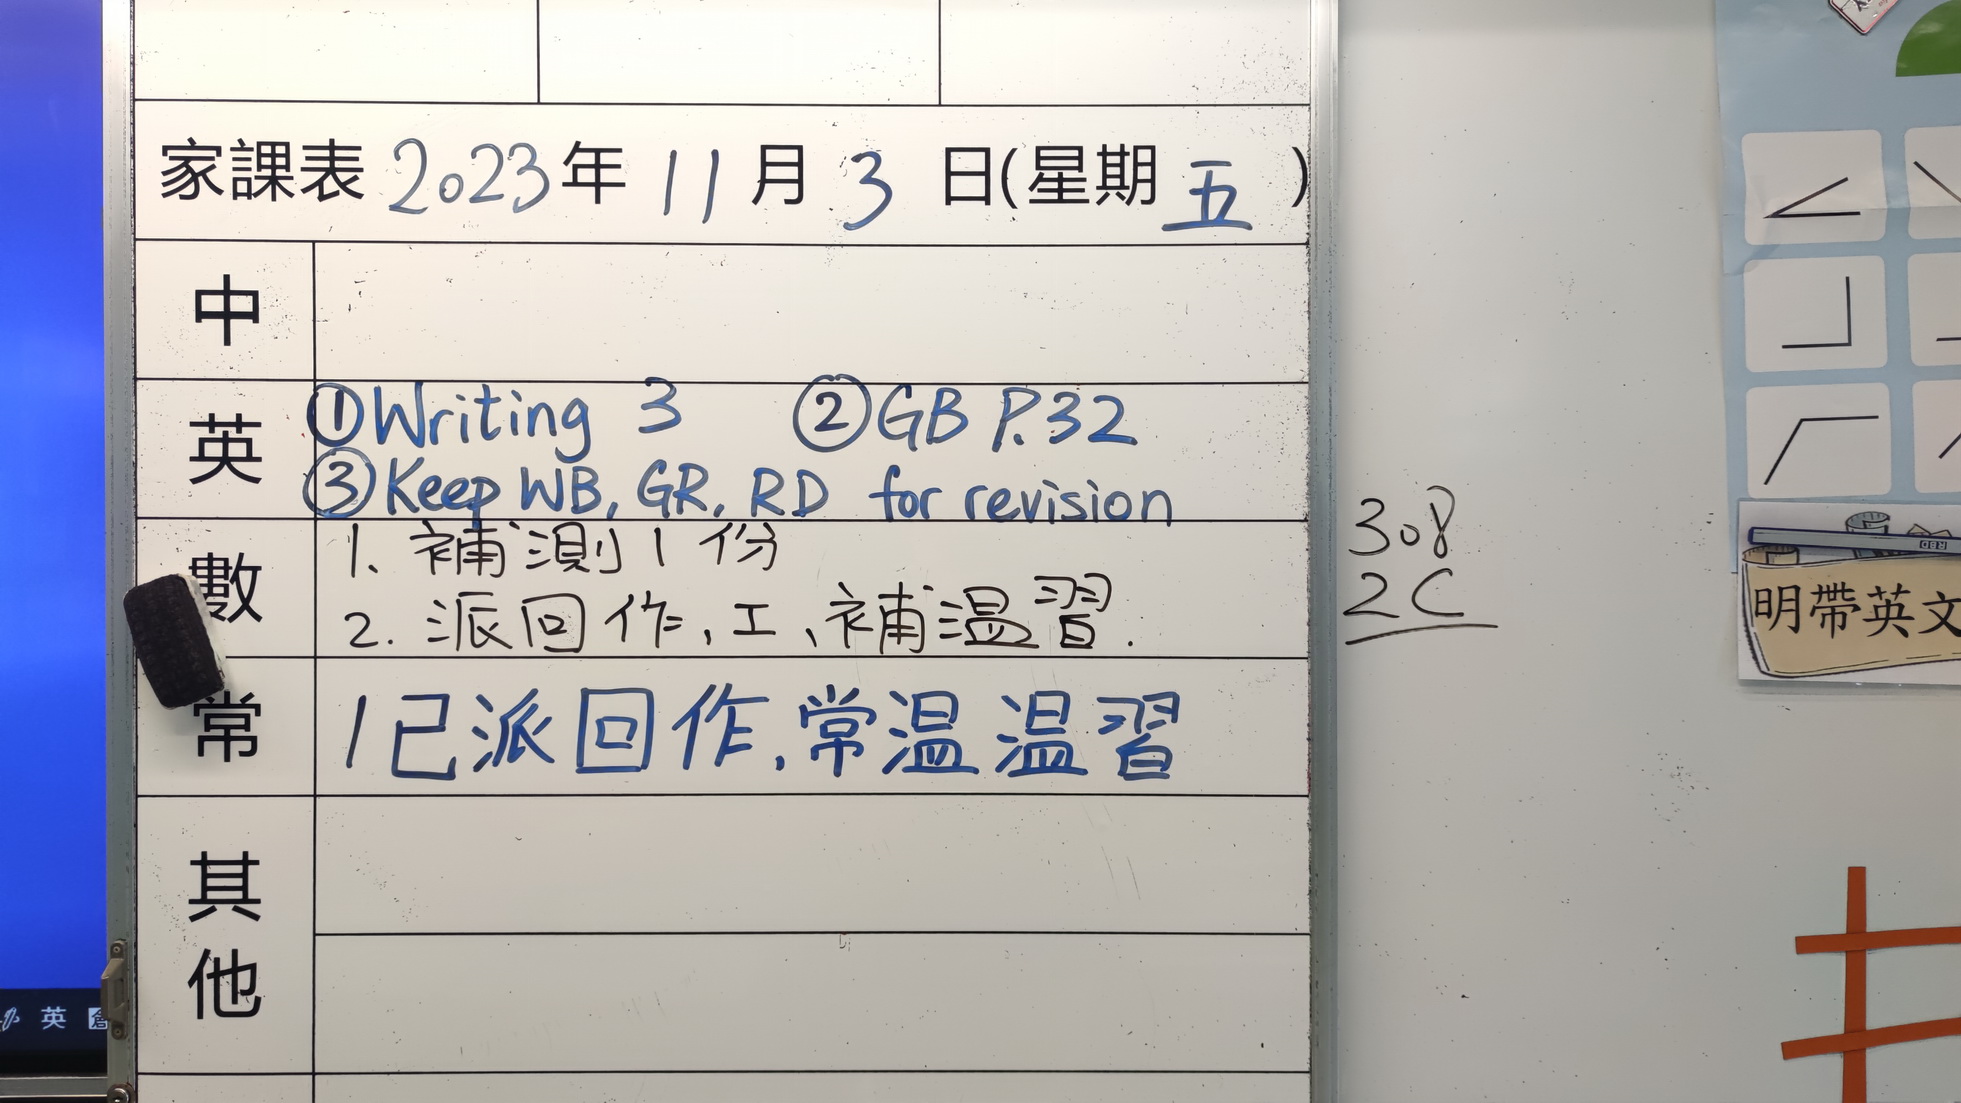 家課表 2023年 11月 3日(星期五)
中
英
①Writing 3 ②GB P.32
③Keep WB, GR, RD for revision
數
1. 補測1份
2. 派回作、工、補溫習.
常
1已派回作、常溫溫習
其他
308
2C
明帶英文
RBD
英
倉